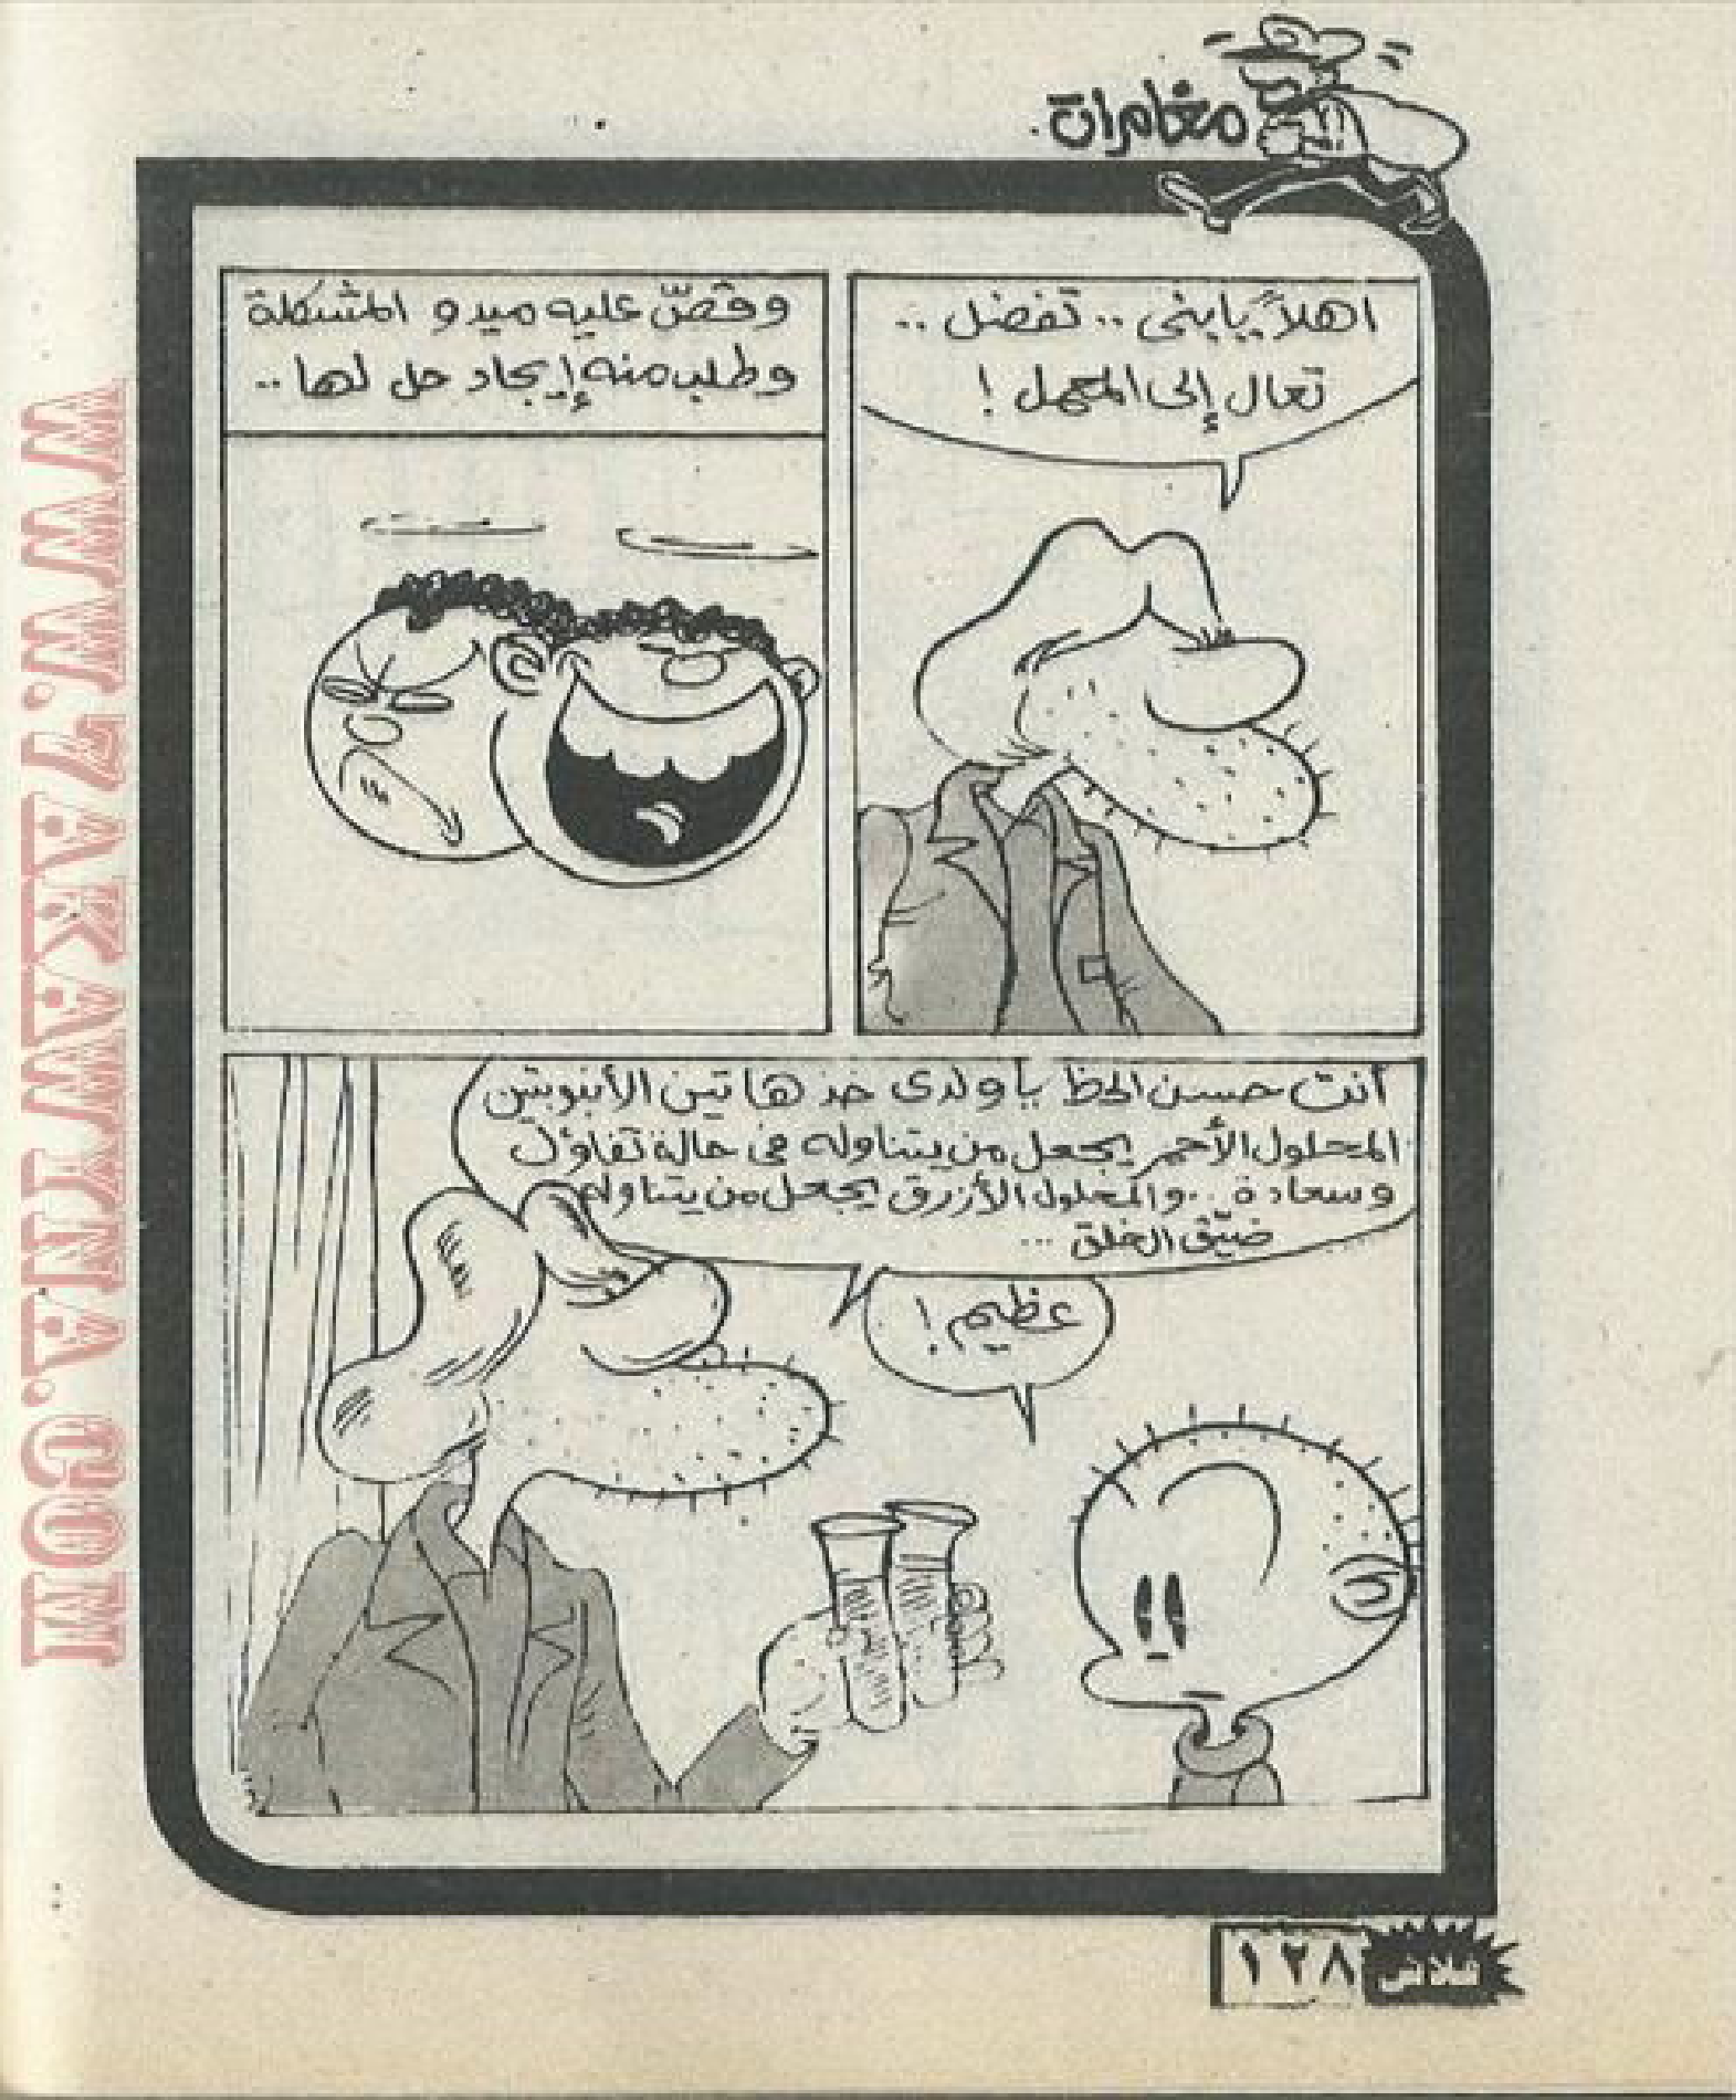 مغامرات
اهلاً يابنى .. تفضل ..
تعال إلى المعمل !
وقصّ عليه ميدو المشكلة
وطلب منه إيجاد حل لها ..
أنت حسن الحظ ياولدى خذ هاتين الأنبوبتين
المحلول الأحمر يجعل من يتناوله فى حالة تفاؤل
وسعادة .. والمحلول الأزرق يجعل من يتناوله
ضيّق الخلق ...
عظيم !
فلاش ١٢٨
WWW.7AKAWINA.COM